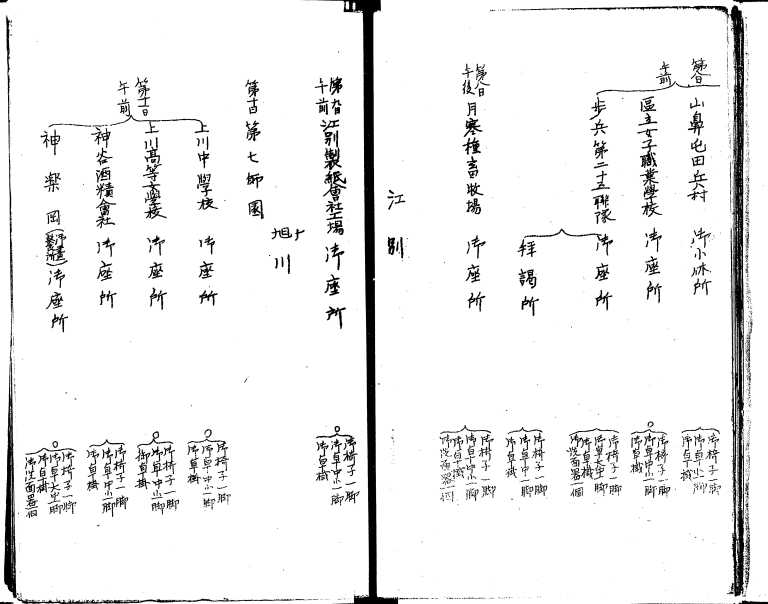 第八日
午前
山鼻屯田兵村 御小休所
御椅子一脚
御卓小一脚
御卓掛
區立女子職業學校 御座所
御椅子一脚
御卓中小一脚
御卓掛
歩兵第二十五聯隊 御座所
御椅子一脚
御卓大中一脚
御卓掛
御洗面器一個
拝謁所
御椅子一脚
御卓中小一脚
御卓掛
第八日
午後
月寒種畜牧場 御座所
御椅子一脚
御卓中小一脚
御卓掛
御洗面器一個
江別
第九日
午前
江別製紙會社工場 御座所
御椅子一脚
御卓中小一脚
御卓掛
旭川
第十日
第七師團
第十一日
午前
上川中學校 御座所
御椅子一脚
御卓中小一脚
御卓掛
上川高等女學校 御座所
御椅子一脚
御卓中小一脚
御卓掛
神谷酒精會社 御座所
御椅子一脚
御卓中小一脚
御卓掛
神楽岡 御座所
御椅子一脚
御卓大中一脚
御卓掛
御洗面器一個